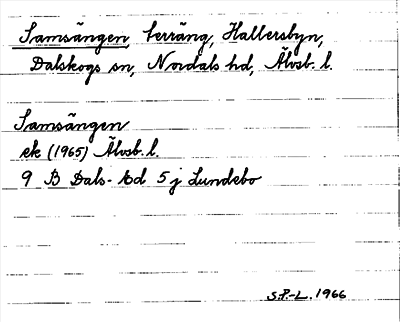 Samsängen, terräng, Hallersbyn,
Dalskogs sn, Nordals hd, Älvsb. l.
Samsängen
ek (1965) Älvsb. l.
9 B Dals-Ed 5 j Lundebo
S.P.-L. 1966